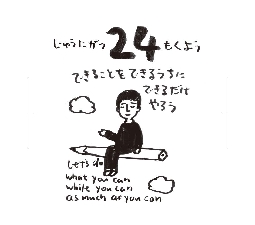 じゅうにがつ 24 もくよう
できることをできるうちに
できるだけ
やろう
Let's do
what you can
while you can
as much as you can